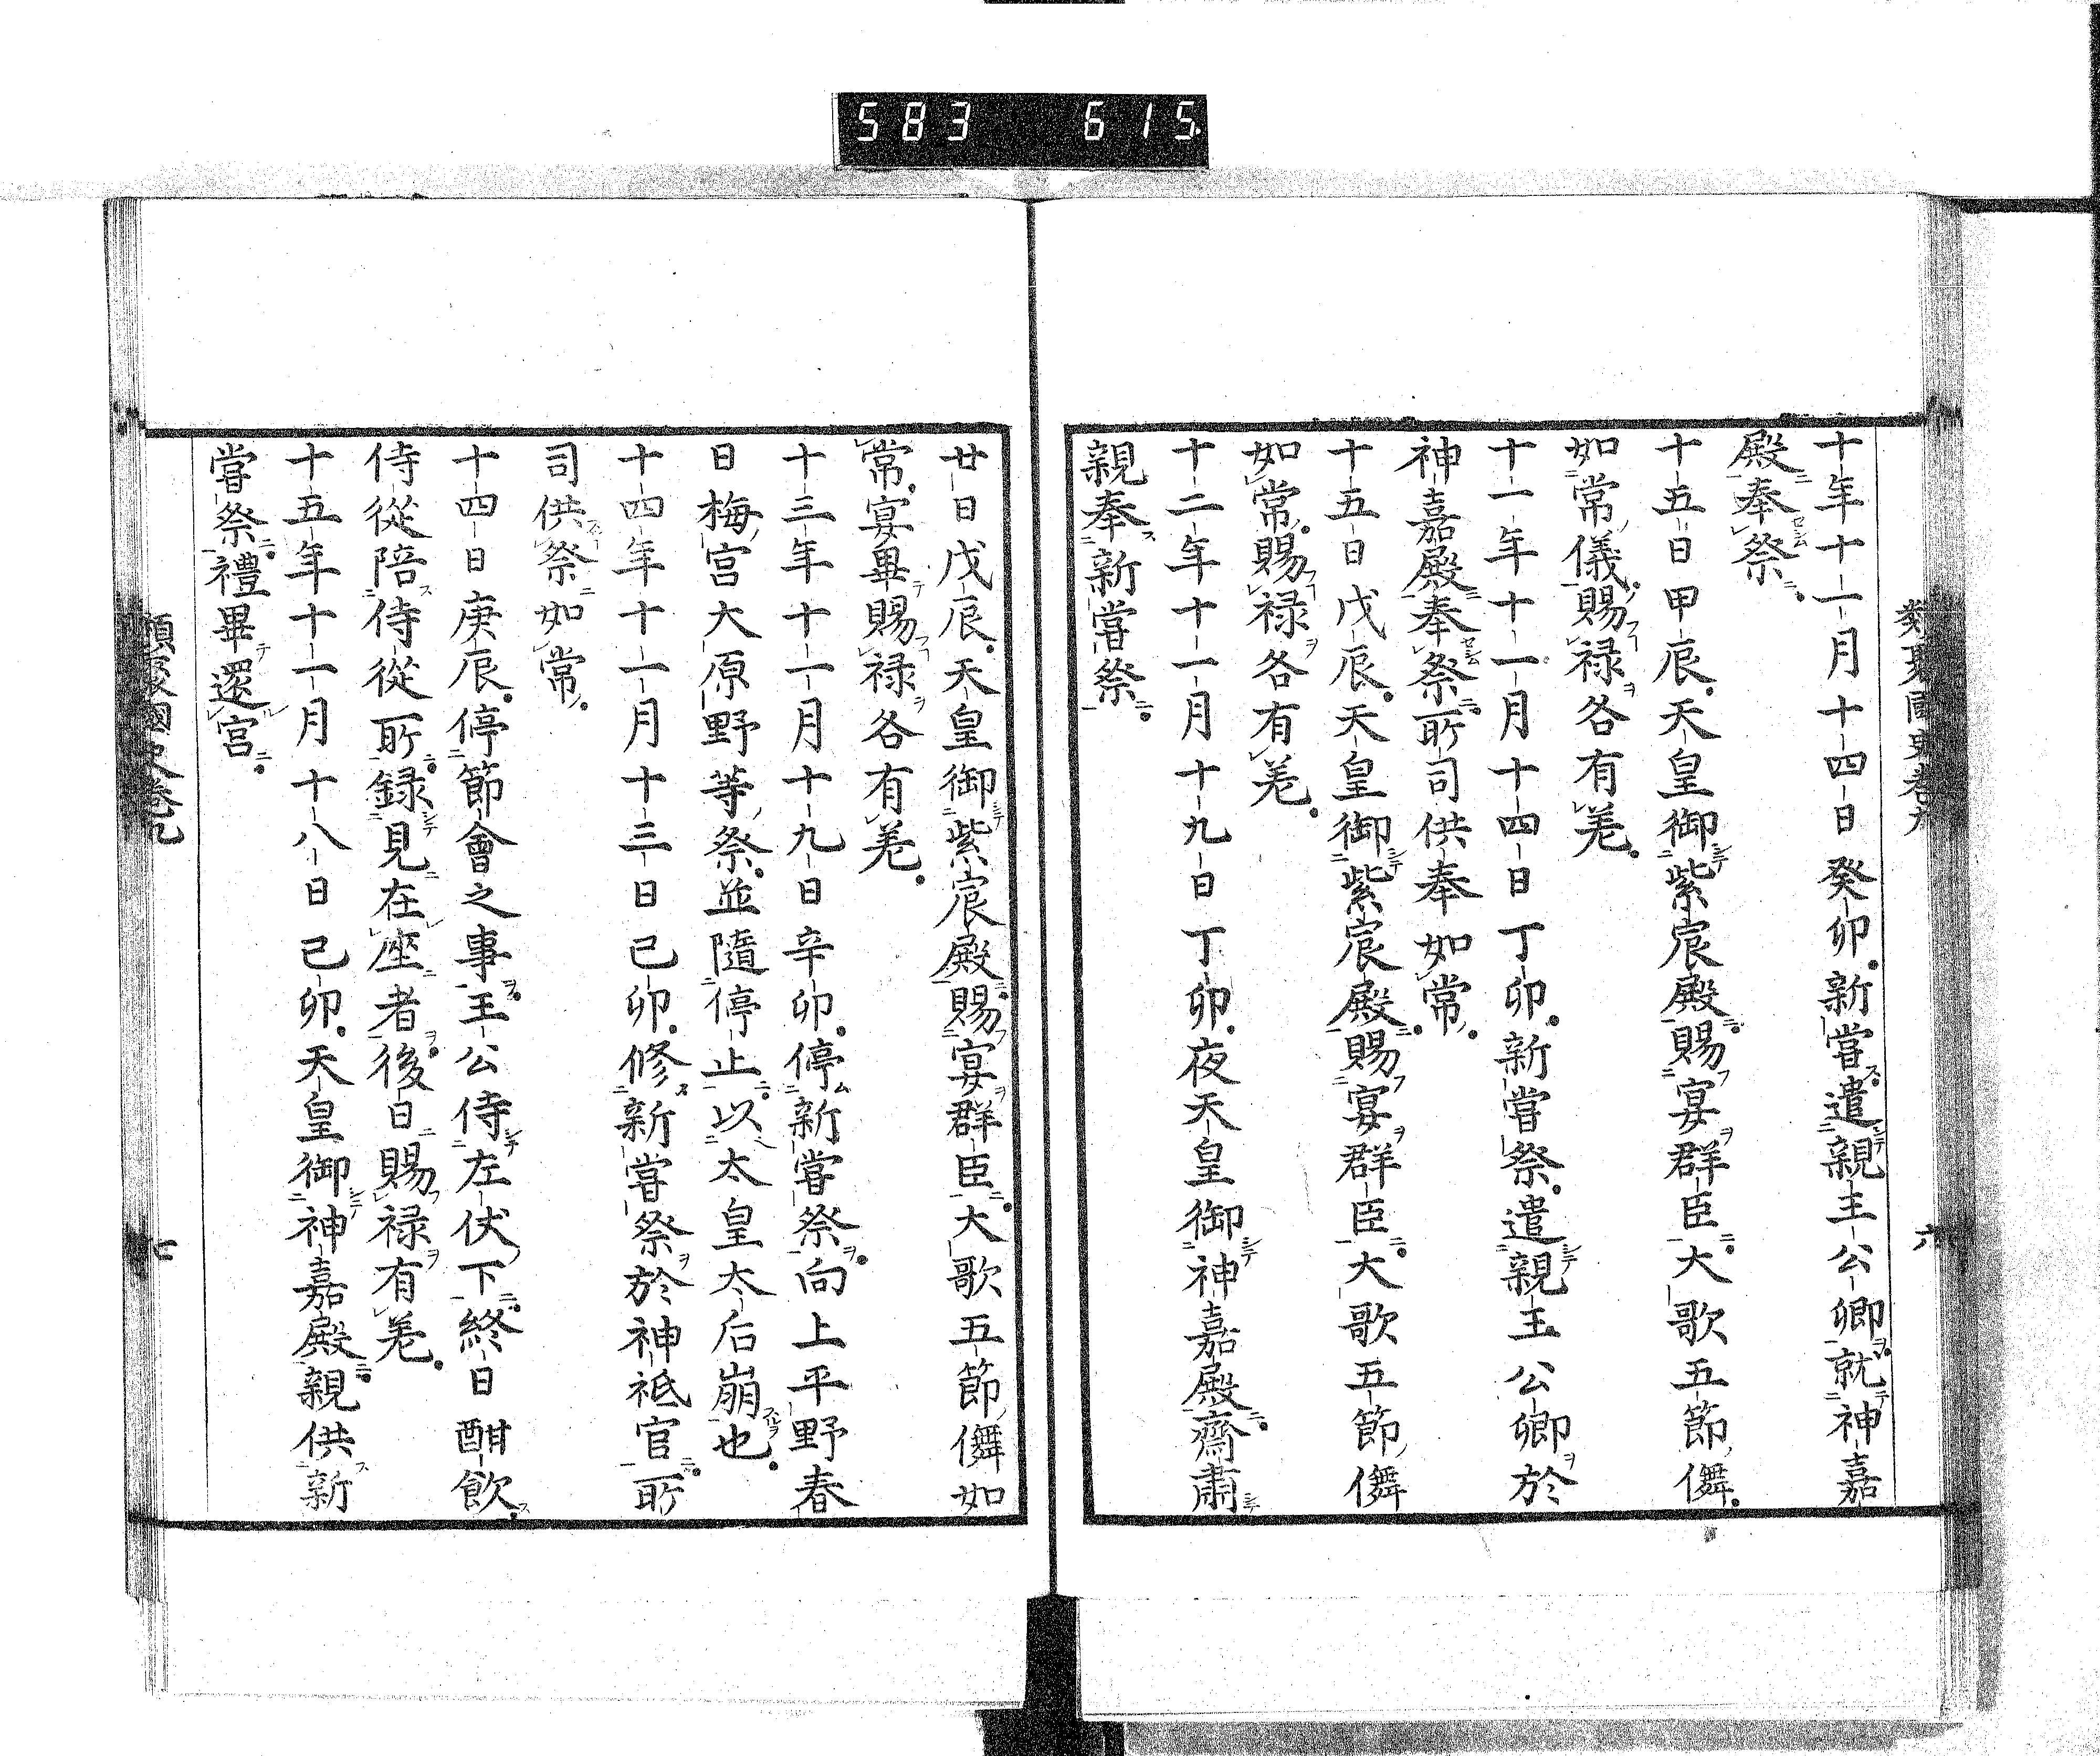 583 615
類聚國史卷九 六
十年十一月十四日癸卯新嘗遣親王公卿就神嘉
殿奉祭
十五日甲辰天皇御紫宸殿賜宴群臣大歌五節儛
如常儀賜禄各有差
十一年十一月十四日丁卯新嘗祭遣親王公卿於
神嘉殿奉祭所司供奉如常
十五日戊辰天皇御紫宸殿賜宴群臣大歌五節儛
如常賜禄各有差
十二年十一月十九日丁卯夜天皇御神嘉殿齋肅
親奉新嘗祭
廿日戊辰天皇御紫宸殿賜宴群臣大歌五節儛如
常宴畢賜禄各有差
十三年十一月十九日辛卯停新嘗祭向上平野春
日梅宮大原野等祭並隨停止以太皇太后崩也
十四年十一月十三日己卯修新嘗祭於神祇官所
司供祭如常
十四日庚辰停節會之事王公侍左伏下終日酣飲
侍從陪侍從所録見在座者後日賜禄有差
十五年十一月十八日己卯天皇御神嘉殿親供新
嘗祭禮畢還宮
類聚國史卷九 七